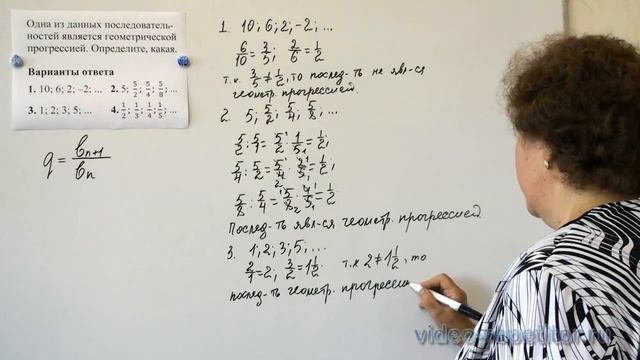 Одна из данных последователь-
ностей является геометрической
прогрессией. Определите, какая.
Варианты ответа
1. 10; 6; 2; –2; ... 2. 5; 5/2; 5/4; 5/8; ...
3. 1; 2; 3; 5; ... 4. 1/2; 1/3; 1/4; 1/5; ...
q = bn+1/bn
1. 10; 6; 2; -2; ...
6/10 = 3/5; 2/6 = 1/2
т.к. 3/5 ≠ 1/2, то послед-ть не явл-ся
геометр. прогрессией.
2. 5; 5/2; 5/4; 5/8; ...
5/2 : 5/1 = 5/2 · 1/5 = 1/2;
5/4 : 5/2 = 5/4 · 2/5 = 1/2;
5/8 : 5/4 = 5/8 · 4/5 = 1/2
Послед-ть явл-ся геометр. прогрессией.
3. 1; 2; 3; 5; ...
2/1 = 2; 3/2 = 1 1/2. т.к 2 ≠ 1 1/2, то
послед-ть геометр. прогрессии
video-repetitor.ru